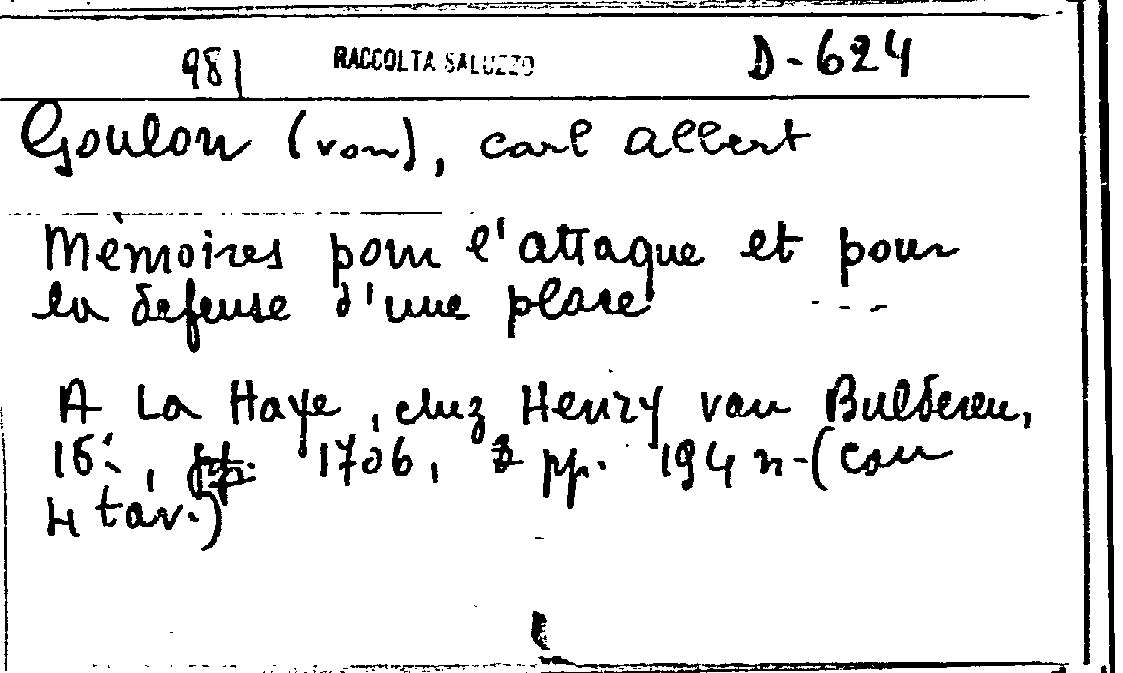 981 RACCOLTA SALUZZO D-624
Goulon (von), carl albert
Mémoires pour l'attaque et pour
la defense d'une place ---
A La Haye, chez Henry van Bulderen,
16°, 1706, pp. 194 n. (con
4 tav.)